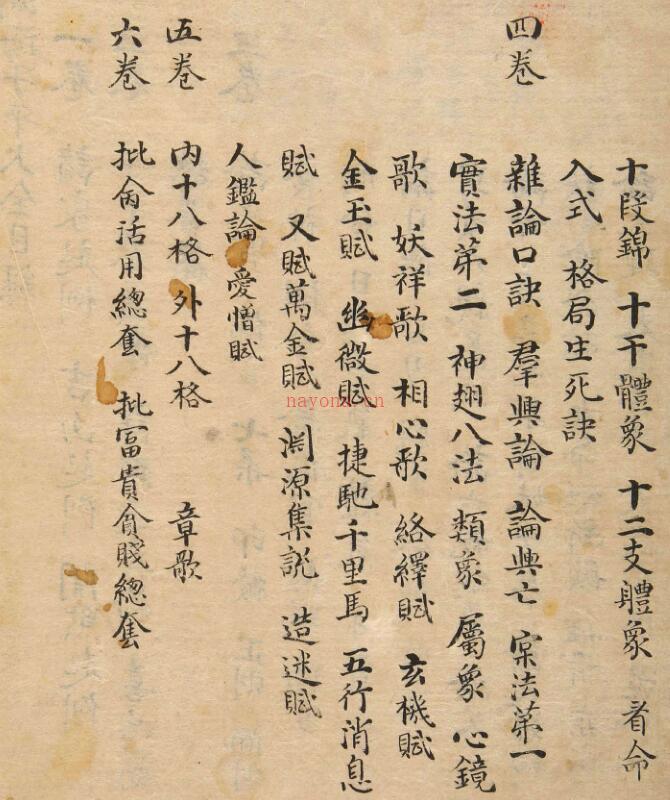 十段錦 十干體象 十二支體象 看命
入式 格局生死訣
四卷 雜論口訣 羣興論 論興亡 寀法第一
實法第二 神趐八法 類象 屬象 心鏡
歌 妖祥歌 相心歌 絡繹賦 玄機賦
金玉賦 幽微賦 捷馳千里馬 五行消息
賦 又賦萬金賦 淵源集説 造迷賦
人鑑論 愛憎賦
五卷 內十八格 外十八格 章歌
六卷 批侖活用總套 批冨貴貪賤總套
nayona.cn